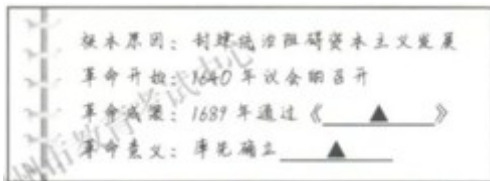 根本原因：封建统治阻碍资本主义发展
革命开始：1640年议会的召开
革命成果：1689年通过《▲》
革命意义：率先确立▲
州市教育考试中心